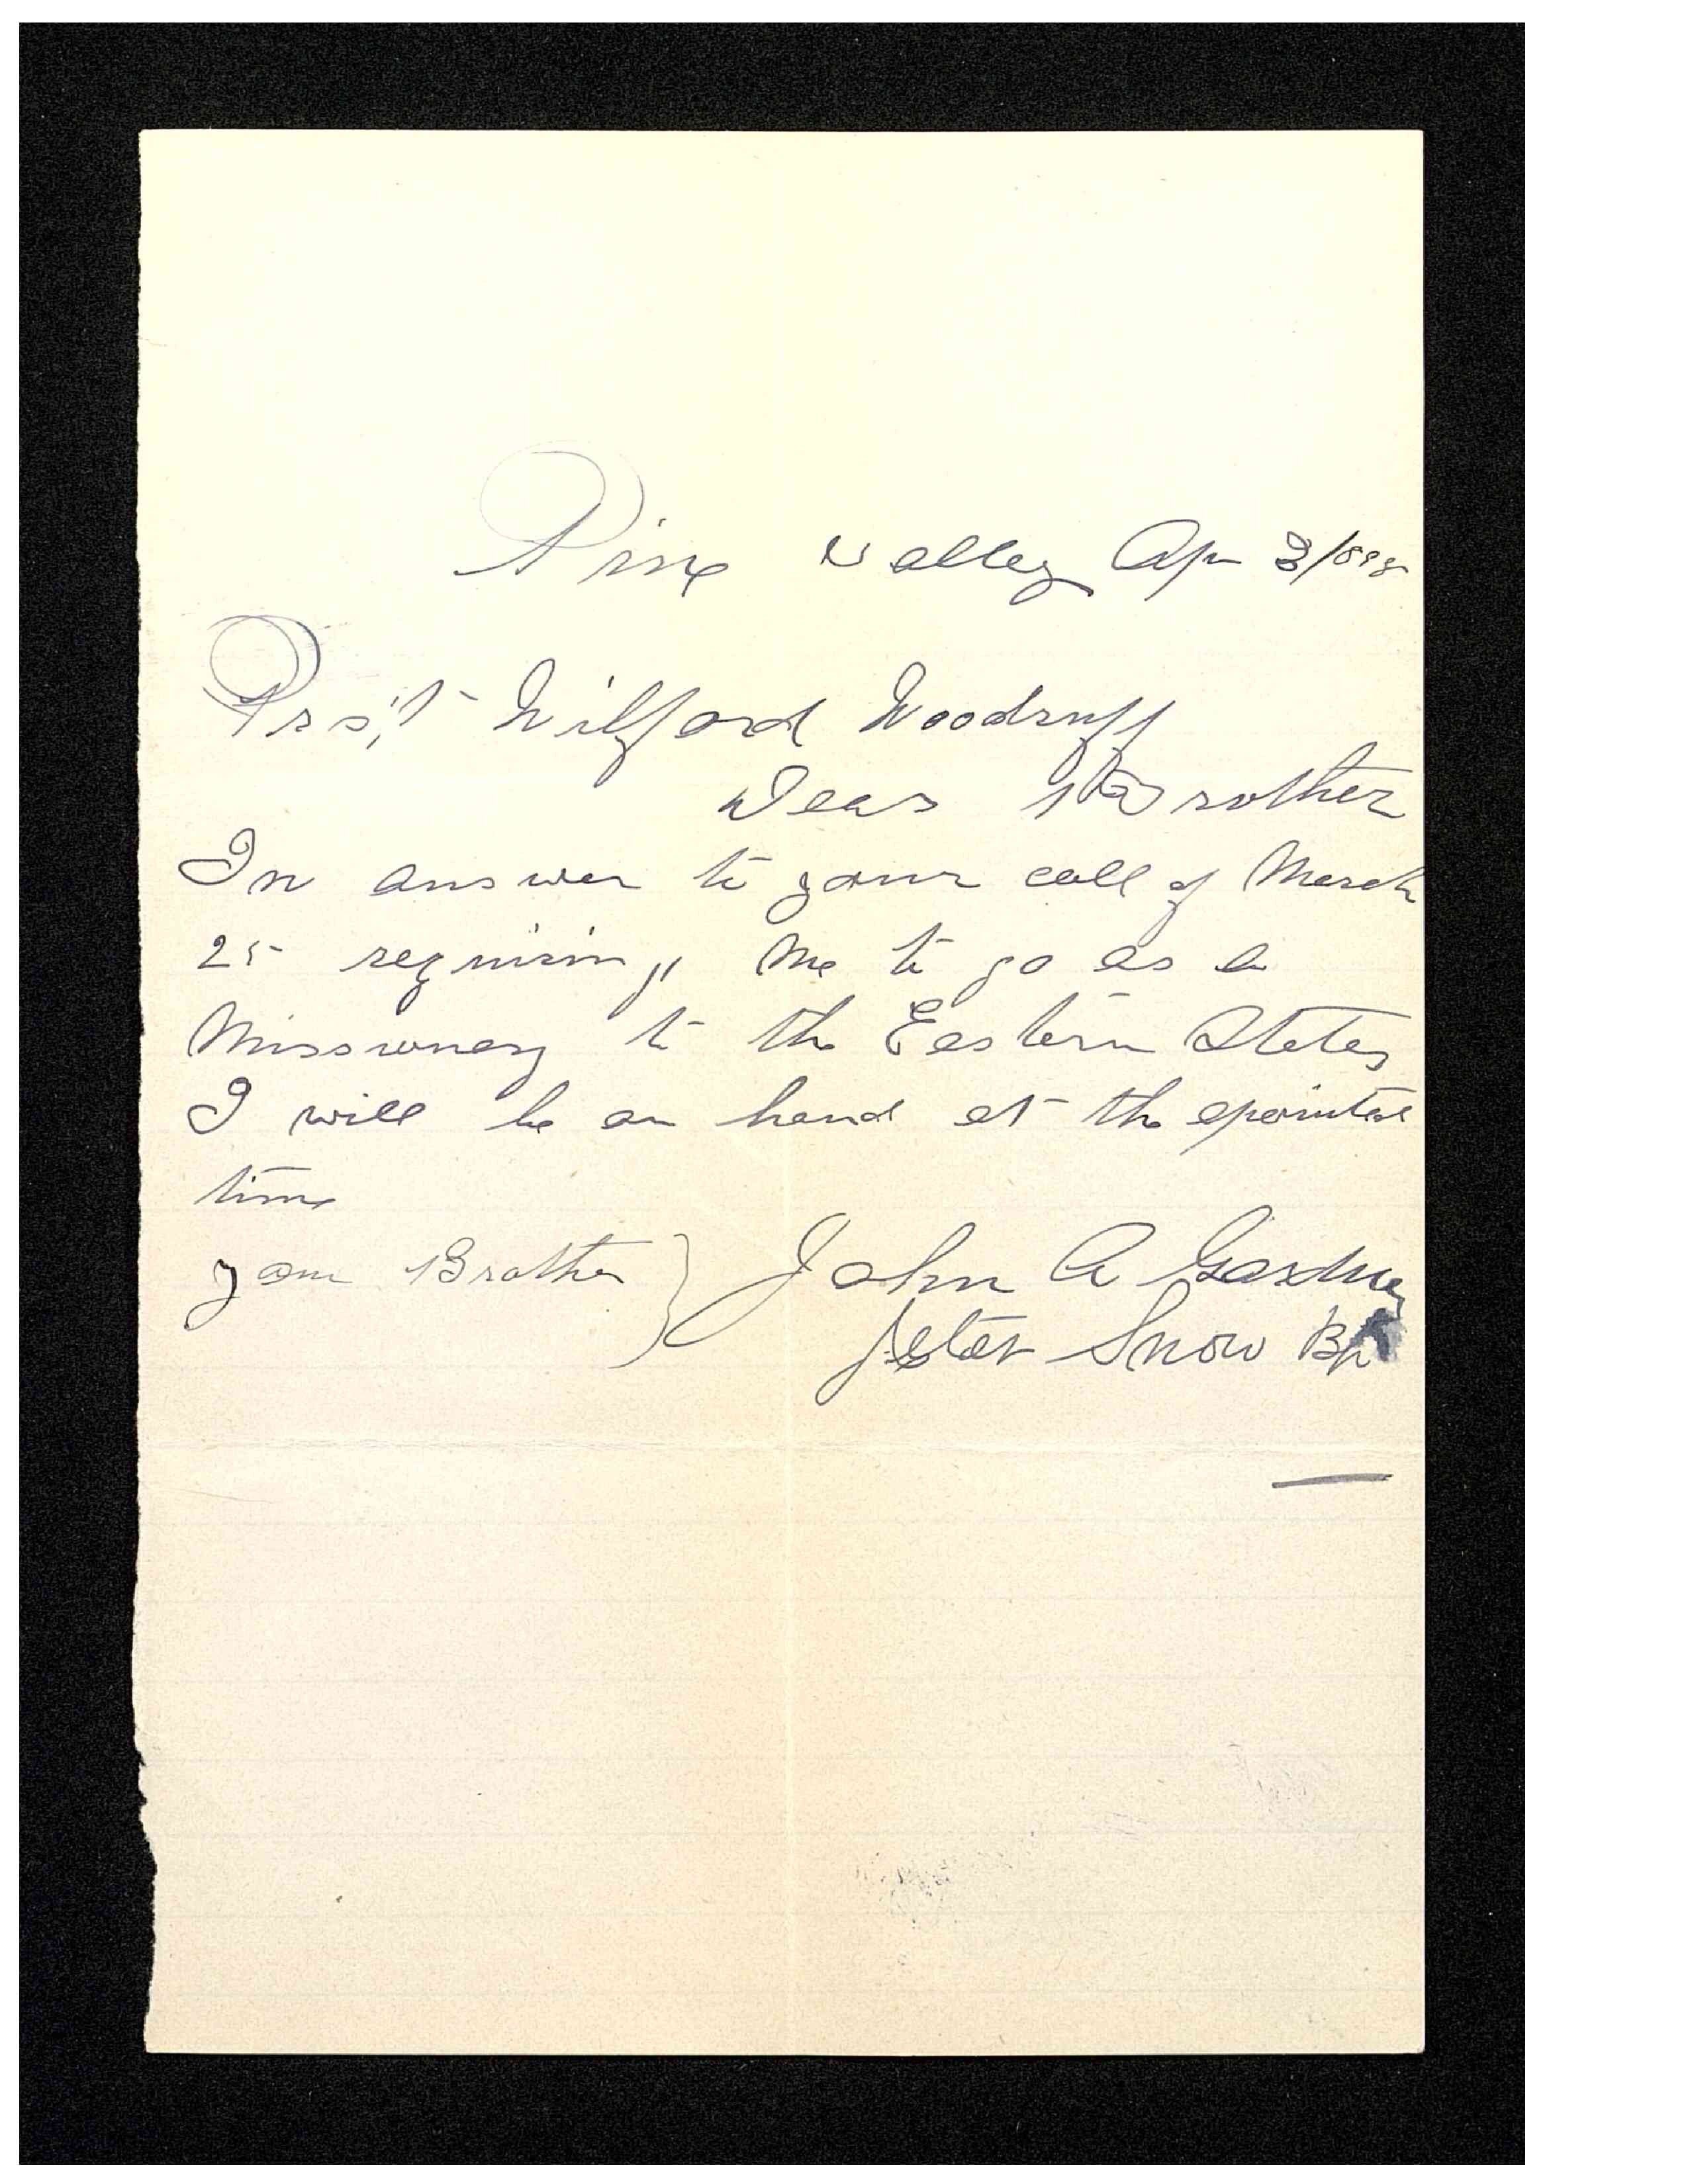 Pine Valley Apr 3/898
Prs't Wilford Woodruff
Dear Brother
In answer to your call of March
25 requiring me to go as a
Missionary to the Eastern States
I will be on hand at the apointed
time
your Brother } John A Gardner
Jeter Snow Bp